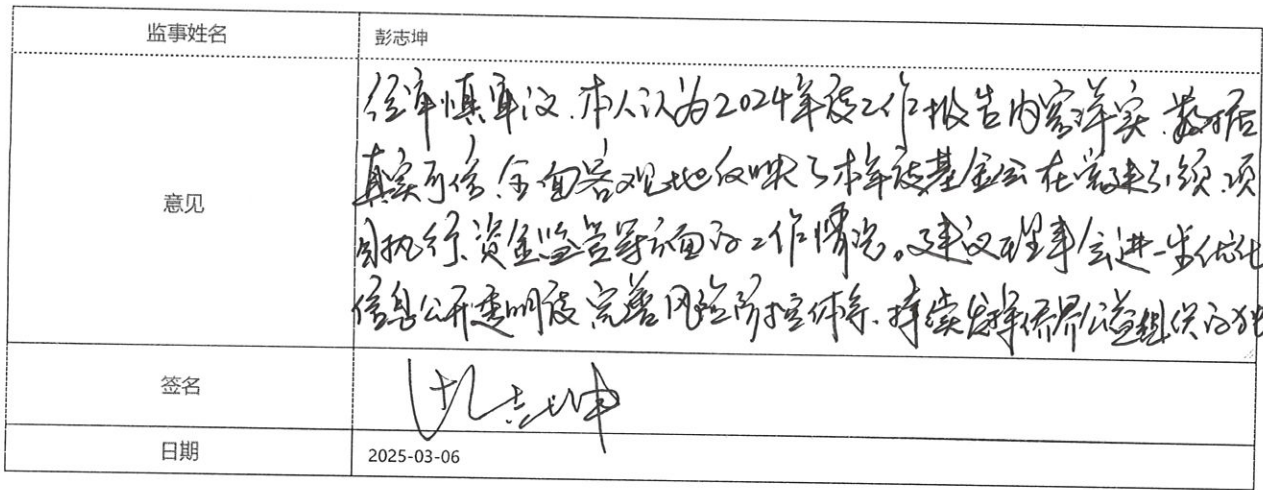 监事姓名 彭志坤
意见
经审慎审议.本人认为2024年度工作报告内容详实.数据
真实可信.全面客观地反映了本年度基金会在党建引领.项
目执行、资金监管等方面的工作情况。建议理事会进一步优化
信息公开透明度.完善风险防控体系.持续发挥侨界公益组织的独
签名 彭志坤
日期 2025-03-06